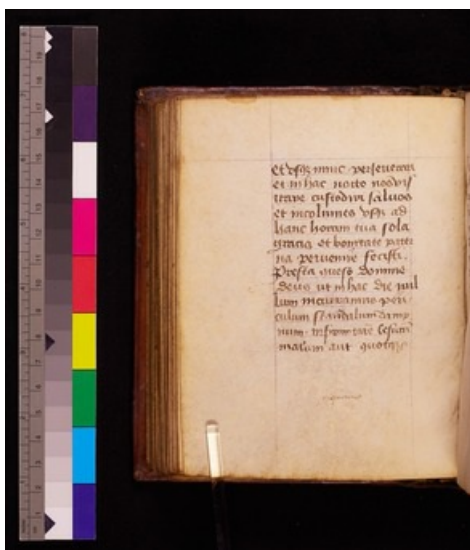 et vsqz nunc perseverare
et in hac nocte nos vi
custodiri saluos
et incolumes vsqz ad
hanc horam tua sola
gracia et bonitate pater
na peruenire fecisti.
Presta queso domine
deus vt in hac die nul
lum incurramus peri
culum scandalum damp
num infirmitatē
malum aut quotqz